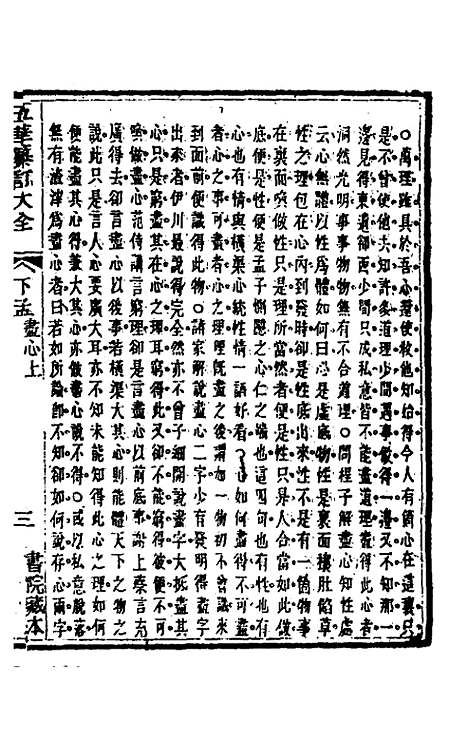 ○萬理雖具於吾心還使教他知始得今人有箇心在這裏只
是不曾使他去知許多道理少間遇事做得一邊又不知那一
邊見得東遺卻西少間只成私意皆不能盡道理盡得此心者
洞然光明事事物物無有不合道理○問程子解盡心知性處
云心無體以性爲體如何曰心是虛底物性是裏面穰肚餡草
性之理包在心內到發時卻是性底出來性不是有一箇物事
在裏面喚做性只是理所當然者便是性只是人合當如此做
底便是性便是孟子惻隱之心仁之端也這四句也有性也有
心也有情與橫渠心統性情一語好看○心如何盡得不可盡
者心之事可盡者心之理理既盡之後謂如一物初不曾識來
到面前便識得此物○諸家解說盡心二字少有發明得盡字
出來者伊川最說得完全然亦不曾子細開說盡字大抵盡其
心只是窮盡其在心之理耳窮得此又卻不能窮得彼便不可
喚做盡心范侍講言窮理卻是言盡心以前底事謝上蔡言充
廣得去卻言盡心以後事若橫渠大其心則能體天下之物之
說此只是言人心要廣大耳亦不知未能知得此心之理如何
便能盡其心得兼大其心亦做盡心說不得○或以私意脫落
無有渣滓爲盡心者曰若如所論都不知卻如何說存心兩字
五華纂訂大全
下孟
盡心上
三
書院藏本